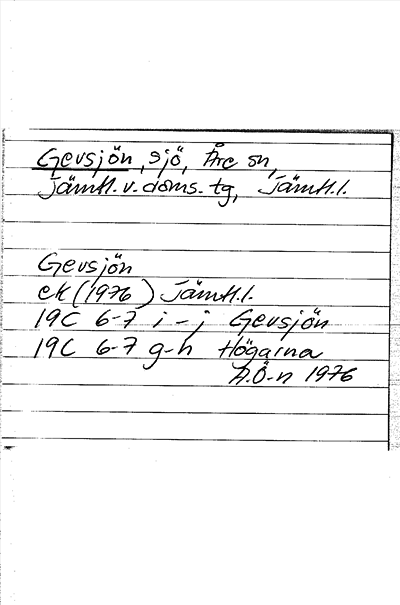 Gevsjön, sjö, Åre sn,
Jämtl. v. doms. tg, Jämtl. l.
Gevsjön
ek (1976) Jämtl. l.
19C 6-7 i-j Gevsjön
19C 6-7 g-h Högarna
A.Ö-n 1976